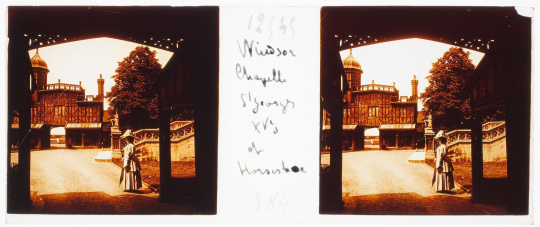 Windsor
Chapelle
St Georges
XVs
et
Horseshoe
984